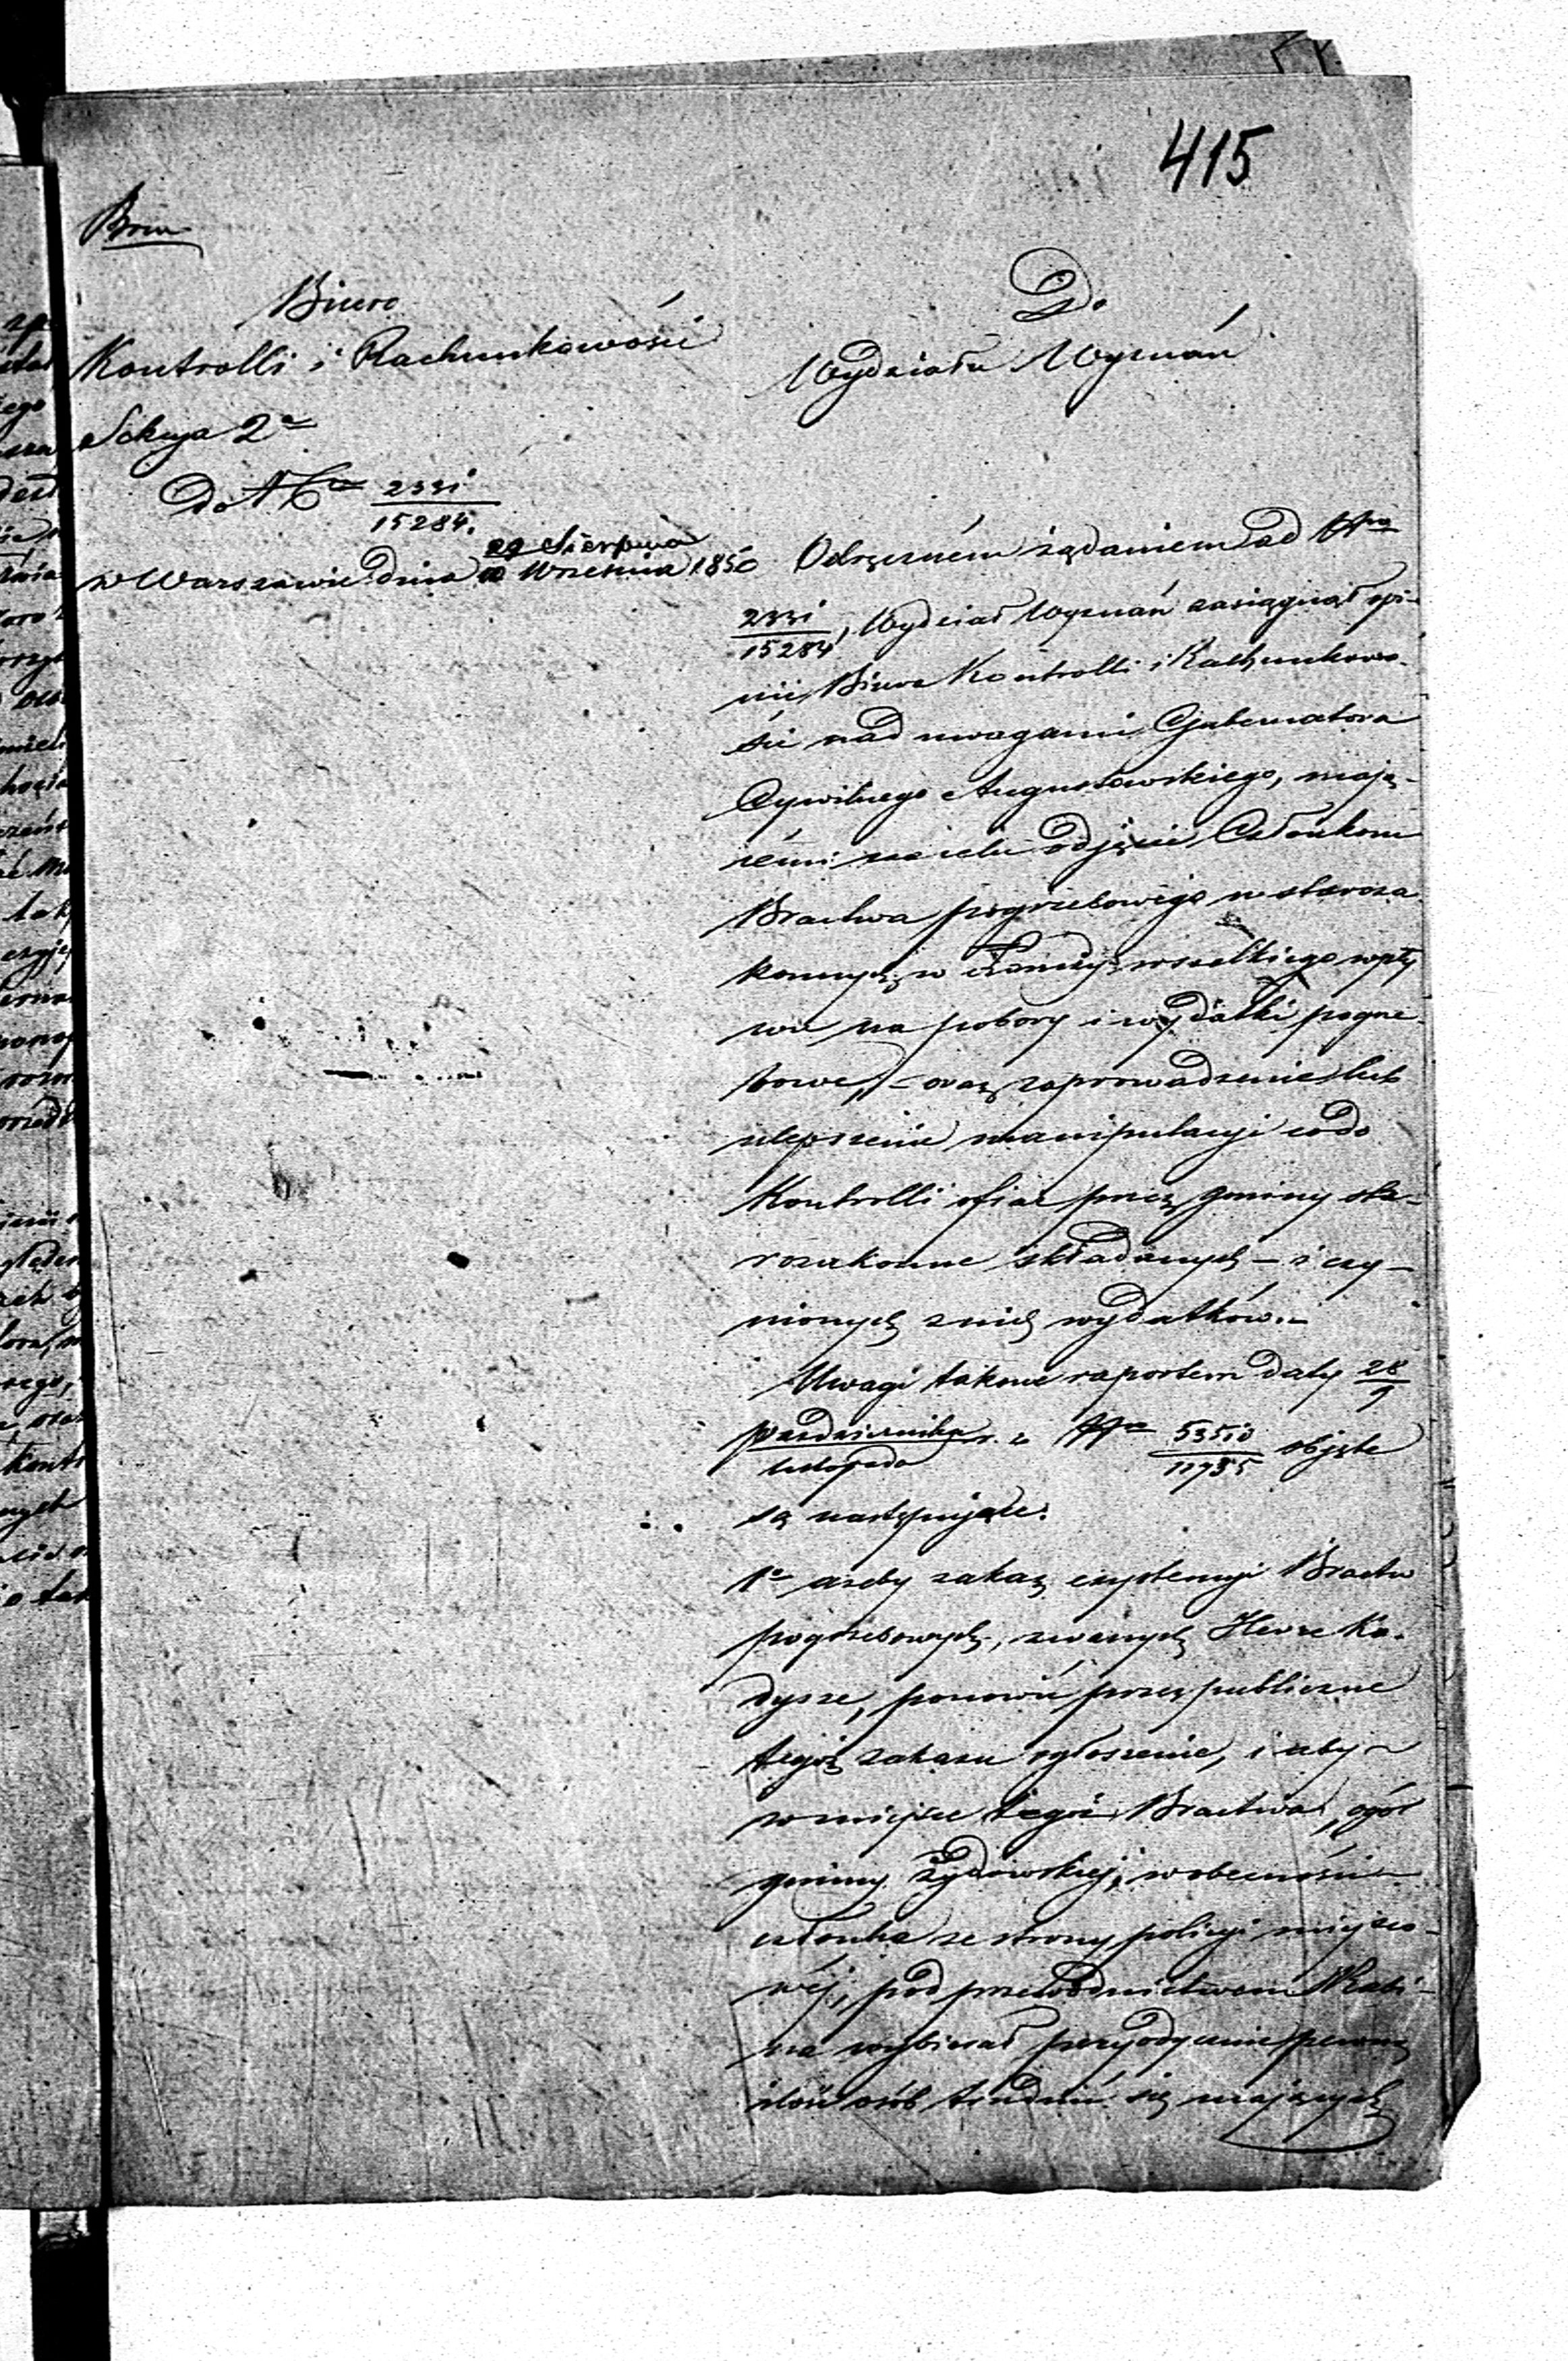 415
Biuro
Kontrolli i Rachunkowości
Sekcya 2ª
Do Nra 2331/15284.
w Warszawie dnia 29 Sierpnia/10 Września 1850
Do
Wydziału Wyznań
Odręczném żądaniem ad Nra
2331/15284, Wydział Wyznań zasiągnął opi-
nii Biura Kontrolli i Rachunkowo-
ści nad uwagami Gubernatora
Cywilnego Augustowskiego, mają-
cémi na celu odjęcie Członkom
Bractwa pogrzebowego u staroza
konnych w Łomży wszelkiego wpły
wu na pobory i wydatki pogrze-
bowe, – oraz zaprowadzenie lub
ulepszenie manipulacyi co do
Kontrolli ofiar przez gminy sta-
rozakonne składanych – i czy-
nionych z nich wydatków.
Uwagi takowe raportem daty 28/9
października/listopada r. z. Nra objęte
są następujące:
1º ażeby zakaz exystencyi Bractw
pogrzebowych, zwanych Hevre Ka-
dysze, ponowić przez publiczne
tegoż zakazu ogłoszenie, i aby
w miejsce tegoż Bractwa, ogół
gminy żydowskiej, w obecności
członka ze strony policyi miejsco-
wéj, pod przewodnictwem Rabi-
na wybierał peryodycznie pewną
ilość osób trudnić się mających